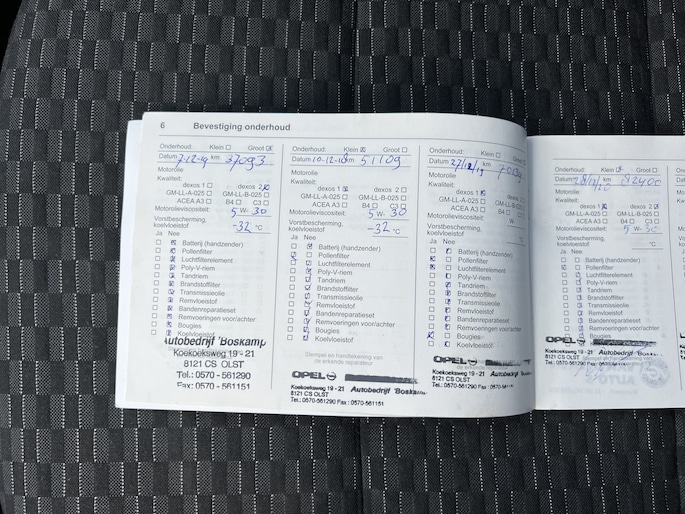 6 Bevestiging onderhoud
Onderhoud: Klein Groot
Datum 7-12- km 37093
Motorolie
Kwaliteit:
dexos 1 dexos 2
GM-LL-A-025 GM-LL-B-025
ACEA A3 B4 C3
Motorolieviscositeit: 5 W- 30
Vorstbescherming,
koelvloeistof -32 °C
Ja Nee
Batterij (handzender)
Pollenfilter
Luchtfilterelement
Poly-V-riem
Tandriem
Brandstoffilter
Transmissieolie
Remvloeistof
Bandenreparatieset
Remvoeringen voor/achter
Bougies
Koelvloeistof
Autobedrijf 'Boskamp
Koekoeksweg 19 - 21
8121 CS OLST
Tel.: 0570 - 561290
Fax : 0570 - 561151
Onderhoud: Klein Groot
Datum 10-12-18 km 51109
Motorolie
Kwaliteit:
dexos 1 dexos 2
GM-LL-A-025 GM-LL-B-025
ACEA A3 B4 C3
Motorolieviscositeit: 5 W- 30
Vorstbescherming,
koelvloeistof -32 °C
Ja Nee
Batterij (handzender)
Pollenfilter
Luchtfilterelement
Poly-V-riem
Tandriem
Brandstoffilter
Transmissieolie
Remvloeistof
Bandenreparatieset
Remvoeringen voor/achter
Bougies
Koelvloeistof
Stempel en handtekening van
de erkende reparateur
OPEL
Koekoeksweg 19 - 21 Autobedrijf 'Boskamp
8121 CS OLST
Tel.: 0570-561290 Fax : 0570-561151
Onderhoud: Klein Groot
Datum 27/12/19 km
Motorolie
Kwaliteit:
dexos 1 dexos 2
GM-LL-A-025 GM-LL-B-025
ACEA A3 B4 C3
Motorolieviscositeit: W-
Vorstbescherming,
koelvloeistof
Ja Nee
Batterij (handzender)
Pollenfilter
Luchtfilterelement
Poly-V-riem
Tandriem
Brandstoffilter
Transmissieolie
Remvloeistof
Bandenreparatieset
Remvoeringen voor/achter
Bougies
Koelvloeistof
OPEL
Koekoeksweg 19 - 21 Autobedrijf 'Boskamp
8121 CS OLST
Tel.: 0570-561290 Fax : 0570-561151
Onderhoud: Klein Groot
Datum km
Motorolie
Kwaliteit:
dexos 1 dexos 2
GM-LL-A-025 GM-LL-B-025
ACEA A3 B4 C3
Motorolieviscositeit: 5 W- 30
Vorstbescherming,
koelvloeistof °C
Ja Nee
Batterij (handzender)
Pollenfilter
Luchtfilterelement
Poly-V-riem
Tandriem
Brandstoffilter
Transmissieolie
Remvloeistof
Bandenreparatieset
Remvoeringen voor/achter
Bougies
Koelvloeistof
OPEL
Koekoeksweg 19 - 21 Autobedrijf 'Boskamp
8121 CS OLST
Tel.: 0570-561290